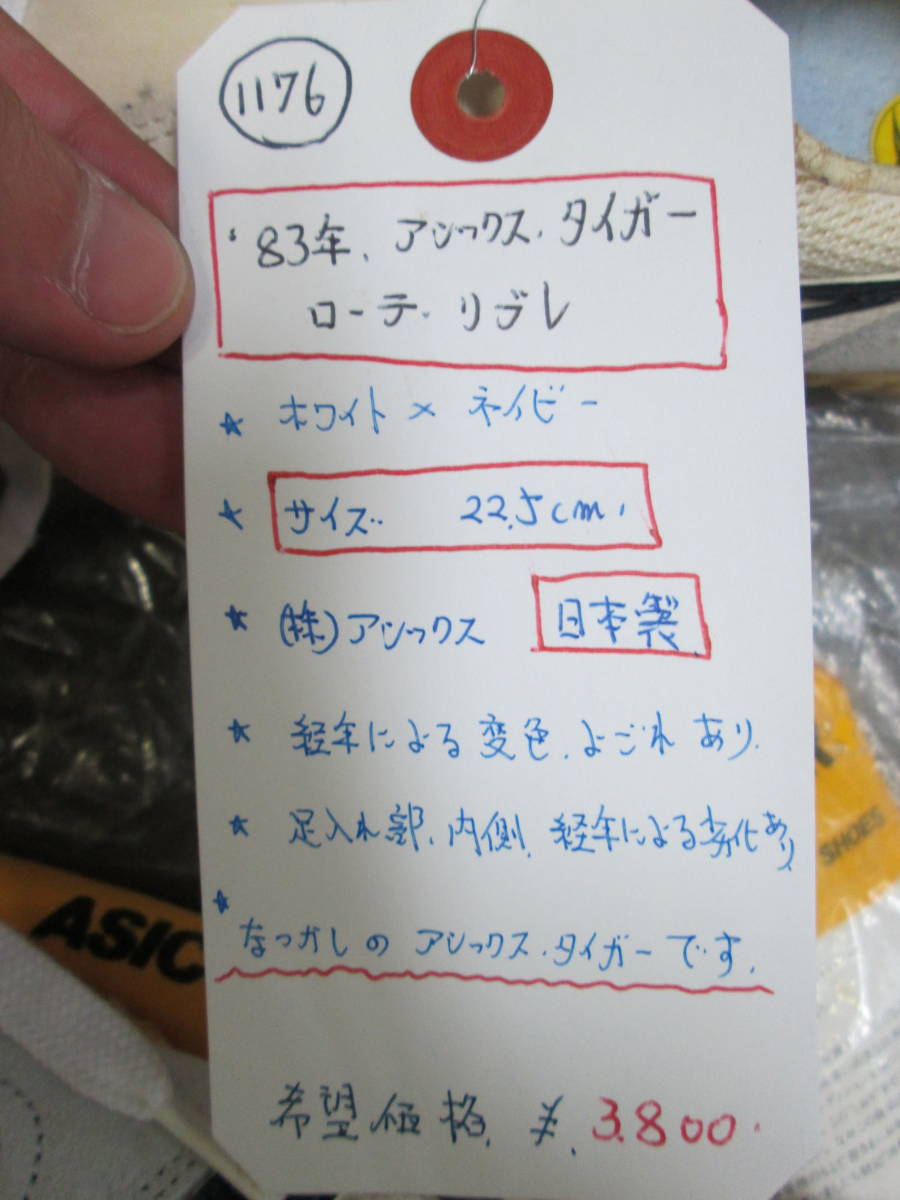 1176
'83年、アシックス.タイガー
ローテ.リブレ
★ ホワイト × ネイビー
★ サイズ. 22.5cm.
★ (株)アシックス 日本製.
★ 経年による変色、よごれあり.
★ 足入れ部、内側、経年による劣化あり
★ なつかしの アシックス.タイガーです.
希望価格. ¥. 3.800.
ASIC
SHOES